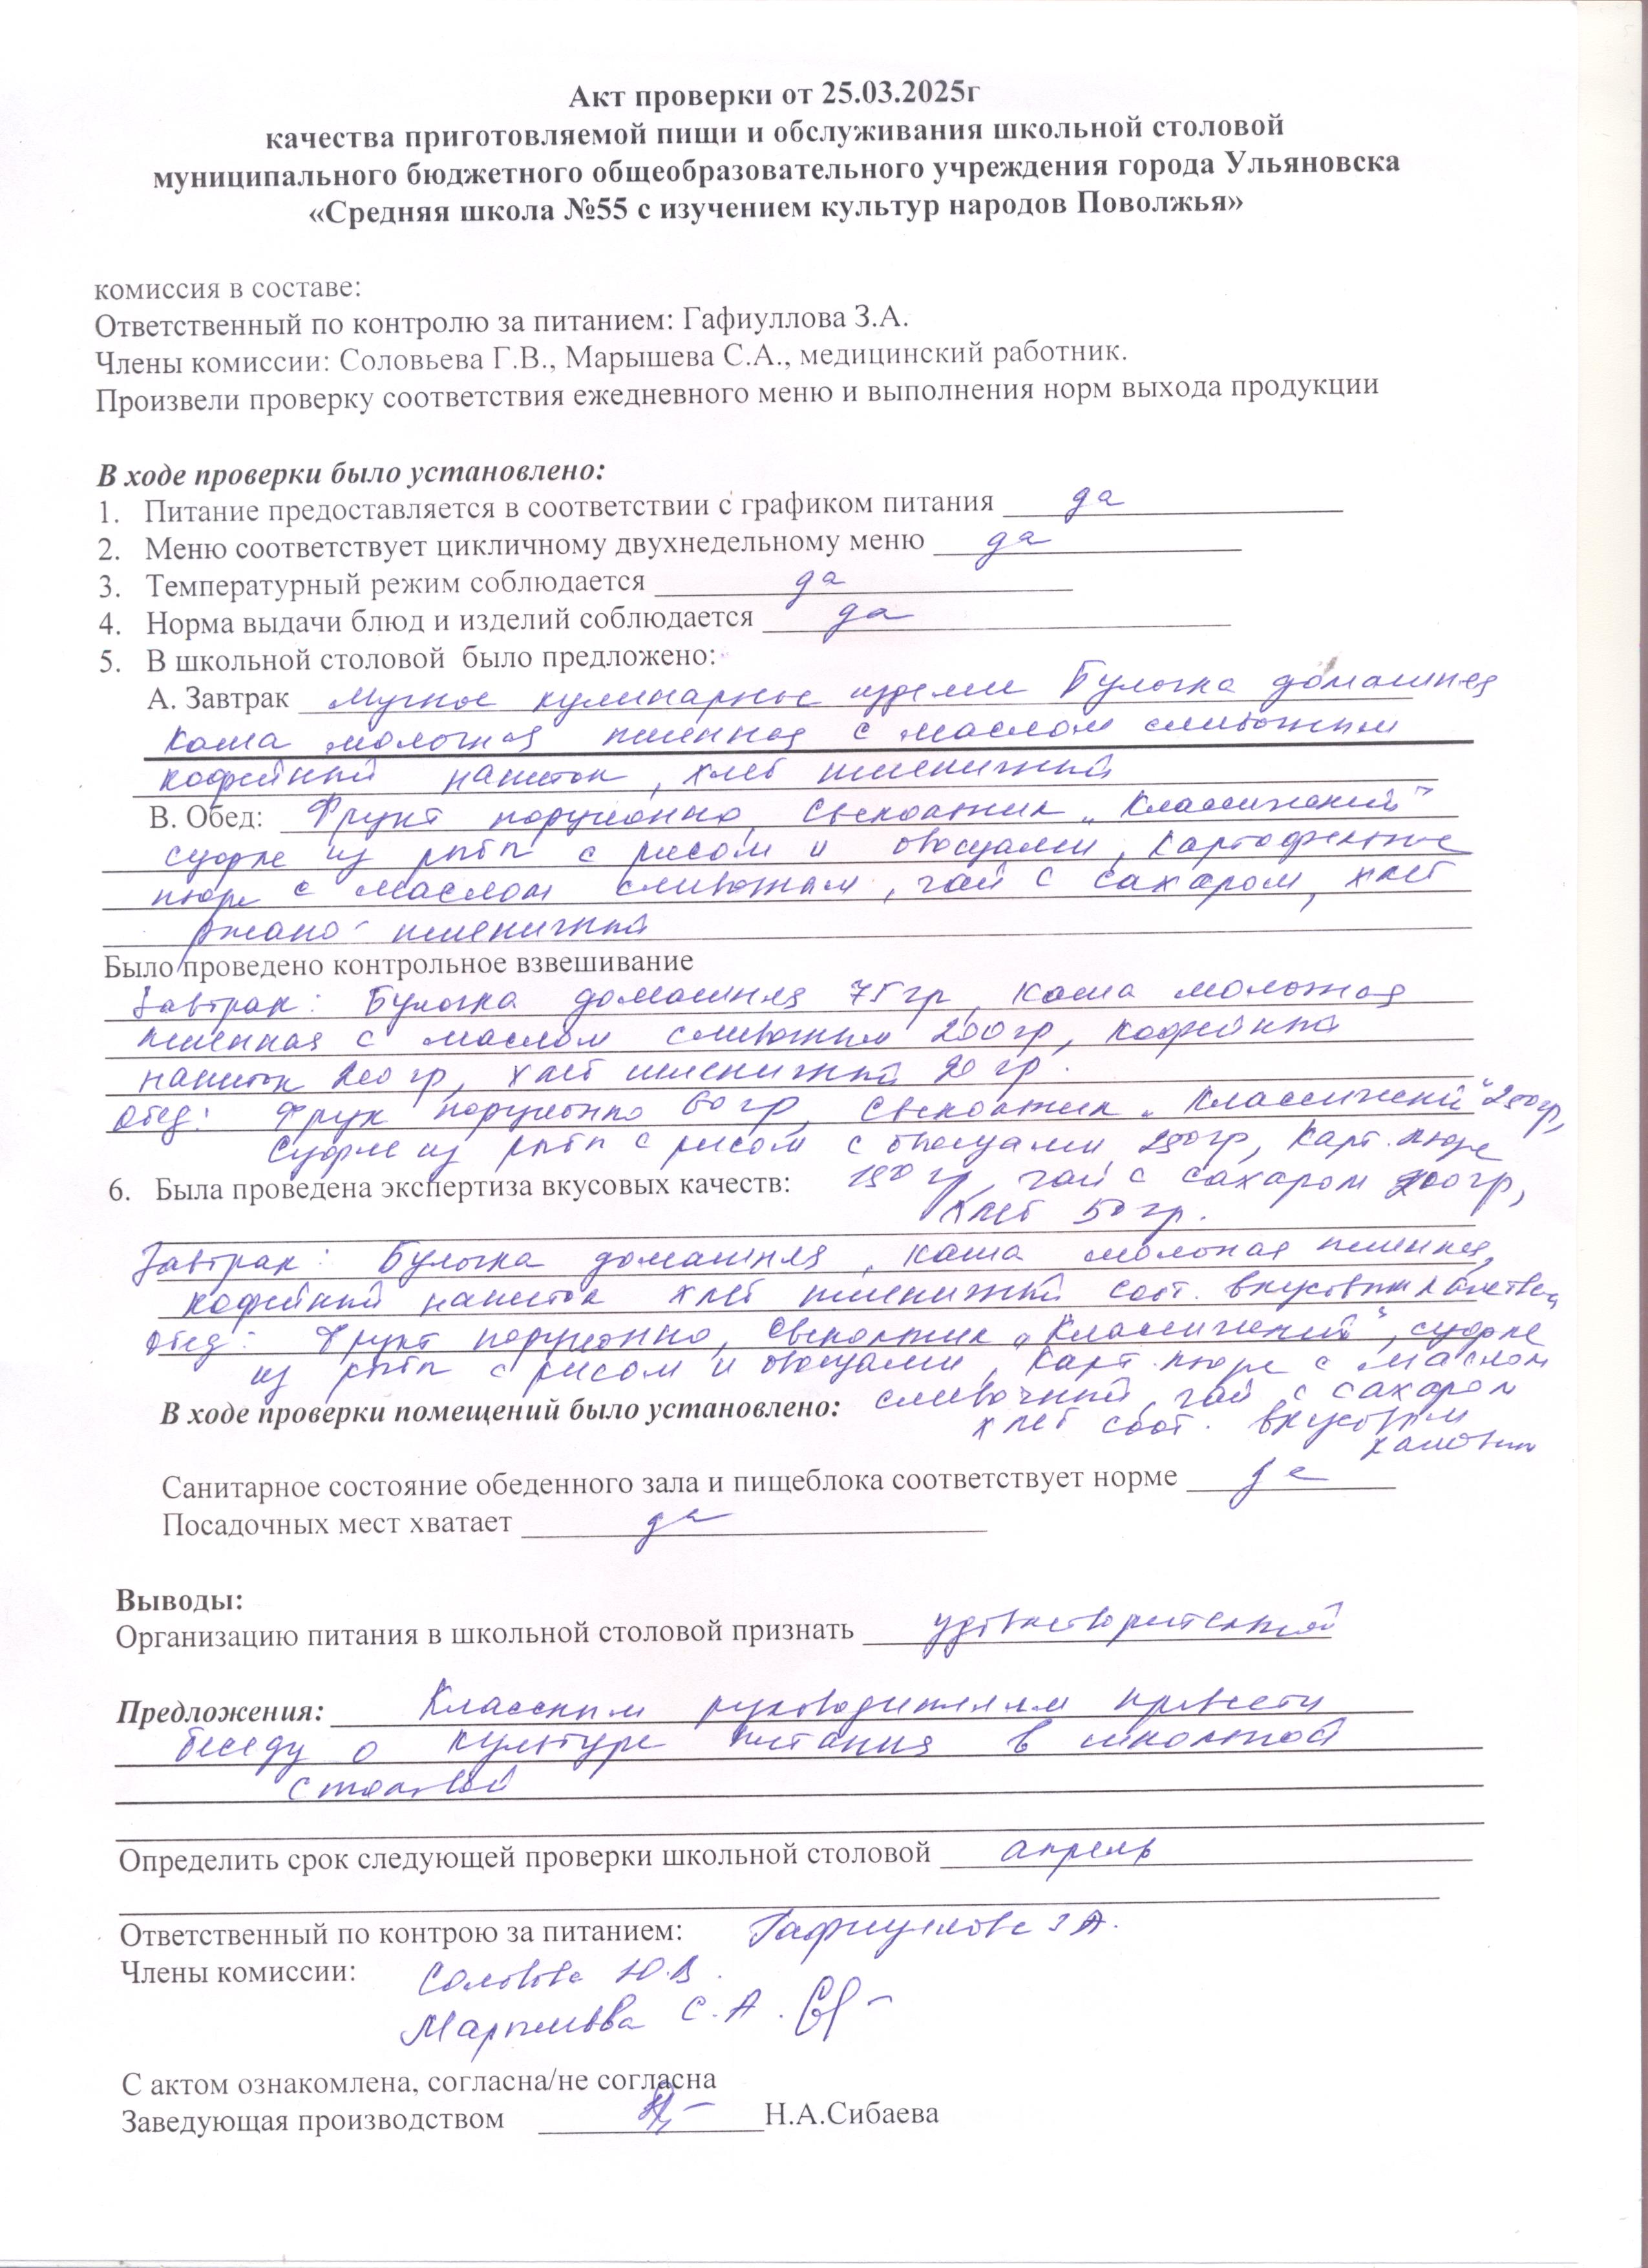 Акт проверки от 25.03.2025г
качества приготовляемой пищи и обслуживания школьной столовой
муниципального бюджетного общеобразовательного учреждения города Ульяновска
«Средняя школа №55 с изучением культур народов Поволжья»
комиссия в составе:
Ответственный по контролю за питанием: Гафиуллова З.А.
Члены комиссии: Соловьева Г.В., Марышева С.А., медицинский работник.
Произвели проверку соответствия ежедневного меню и выполнения норм выхода продукции
В ходе проверки было установлено:
1. Питание предоставляется в соответствии с графиком питания да
2. Меню соответствует цикличному двухнедельному меню да
3. Температурный режим соблюдается да
4. Норма выдачи блюд и изделий соблюдается да
5. В школьной столовой было предложено:
А. Завтрак Мучное кулинарное изделие Булочка домашняя
каша молочная пшенная с маслом сливочным
кофейный напиток, хлеб пшеничный
В. Обед: Фрукт порционно, Свекольник „Классический"
суфле из рыбы с рисом и овощами, картофельное
пюре с маслом сливочным, чай с сахаром, хлеб
ржано-пшеничный
Было проведено контрольное взвешивание
Завтрак: Булочка домашняя 75гр, каша молочная
пшенная с маслом сливочным 200гр, кофейный
напиток 200гр, хлеб пшеничный 20 гр.
Обед: Фрук порционно 60гр, Свекольник „Классический"
Суфле из рыбы с рисом с овощами, Карт. пюре
6. Была проведена экспертиза вкусовых качеств:
чай с сахаром 200гр,
хлеб 50гр.
Завтрак: Булочка домашняя, каша молоная пшенная,
кофейный напиток хлеб пшеничный соот. вкусовым
Обед: Фрукт порционно, Свекольник „Классический", суфле
из рыбы с рисом и овощами, карт. пюре с маслом
В ходе проверки помещений было установлено: сливочный, чай с сахаром
хлеб соот. вкусовым
Санитарное состояние обеденного зала и пищеблока соответствует норме да
Посадочных мест хватает да
Выводы:
Организацию питания в школьной столовой признать удовлетворительной
Предложения: Классным руководителям провести
беседу о культуре питания в школьной
столовой
Определить срок следующей проверки школьной столовой апрель
Ответственный по контрою за питанием: Гафиуллова З А.
Члены комиссии:
Марышева С.А.
С актом ознакомлена, согласна/не согласна
Заведующая производством Н.А.Сибаева